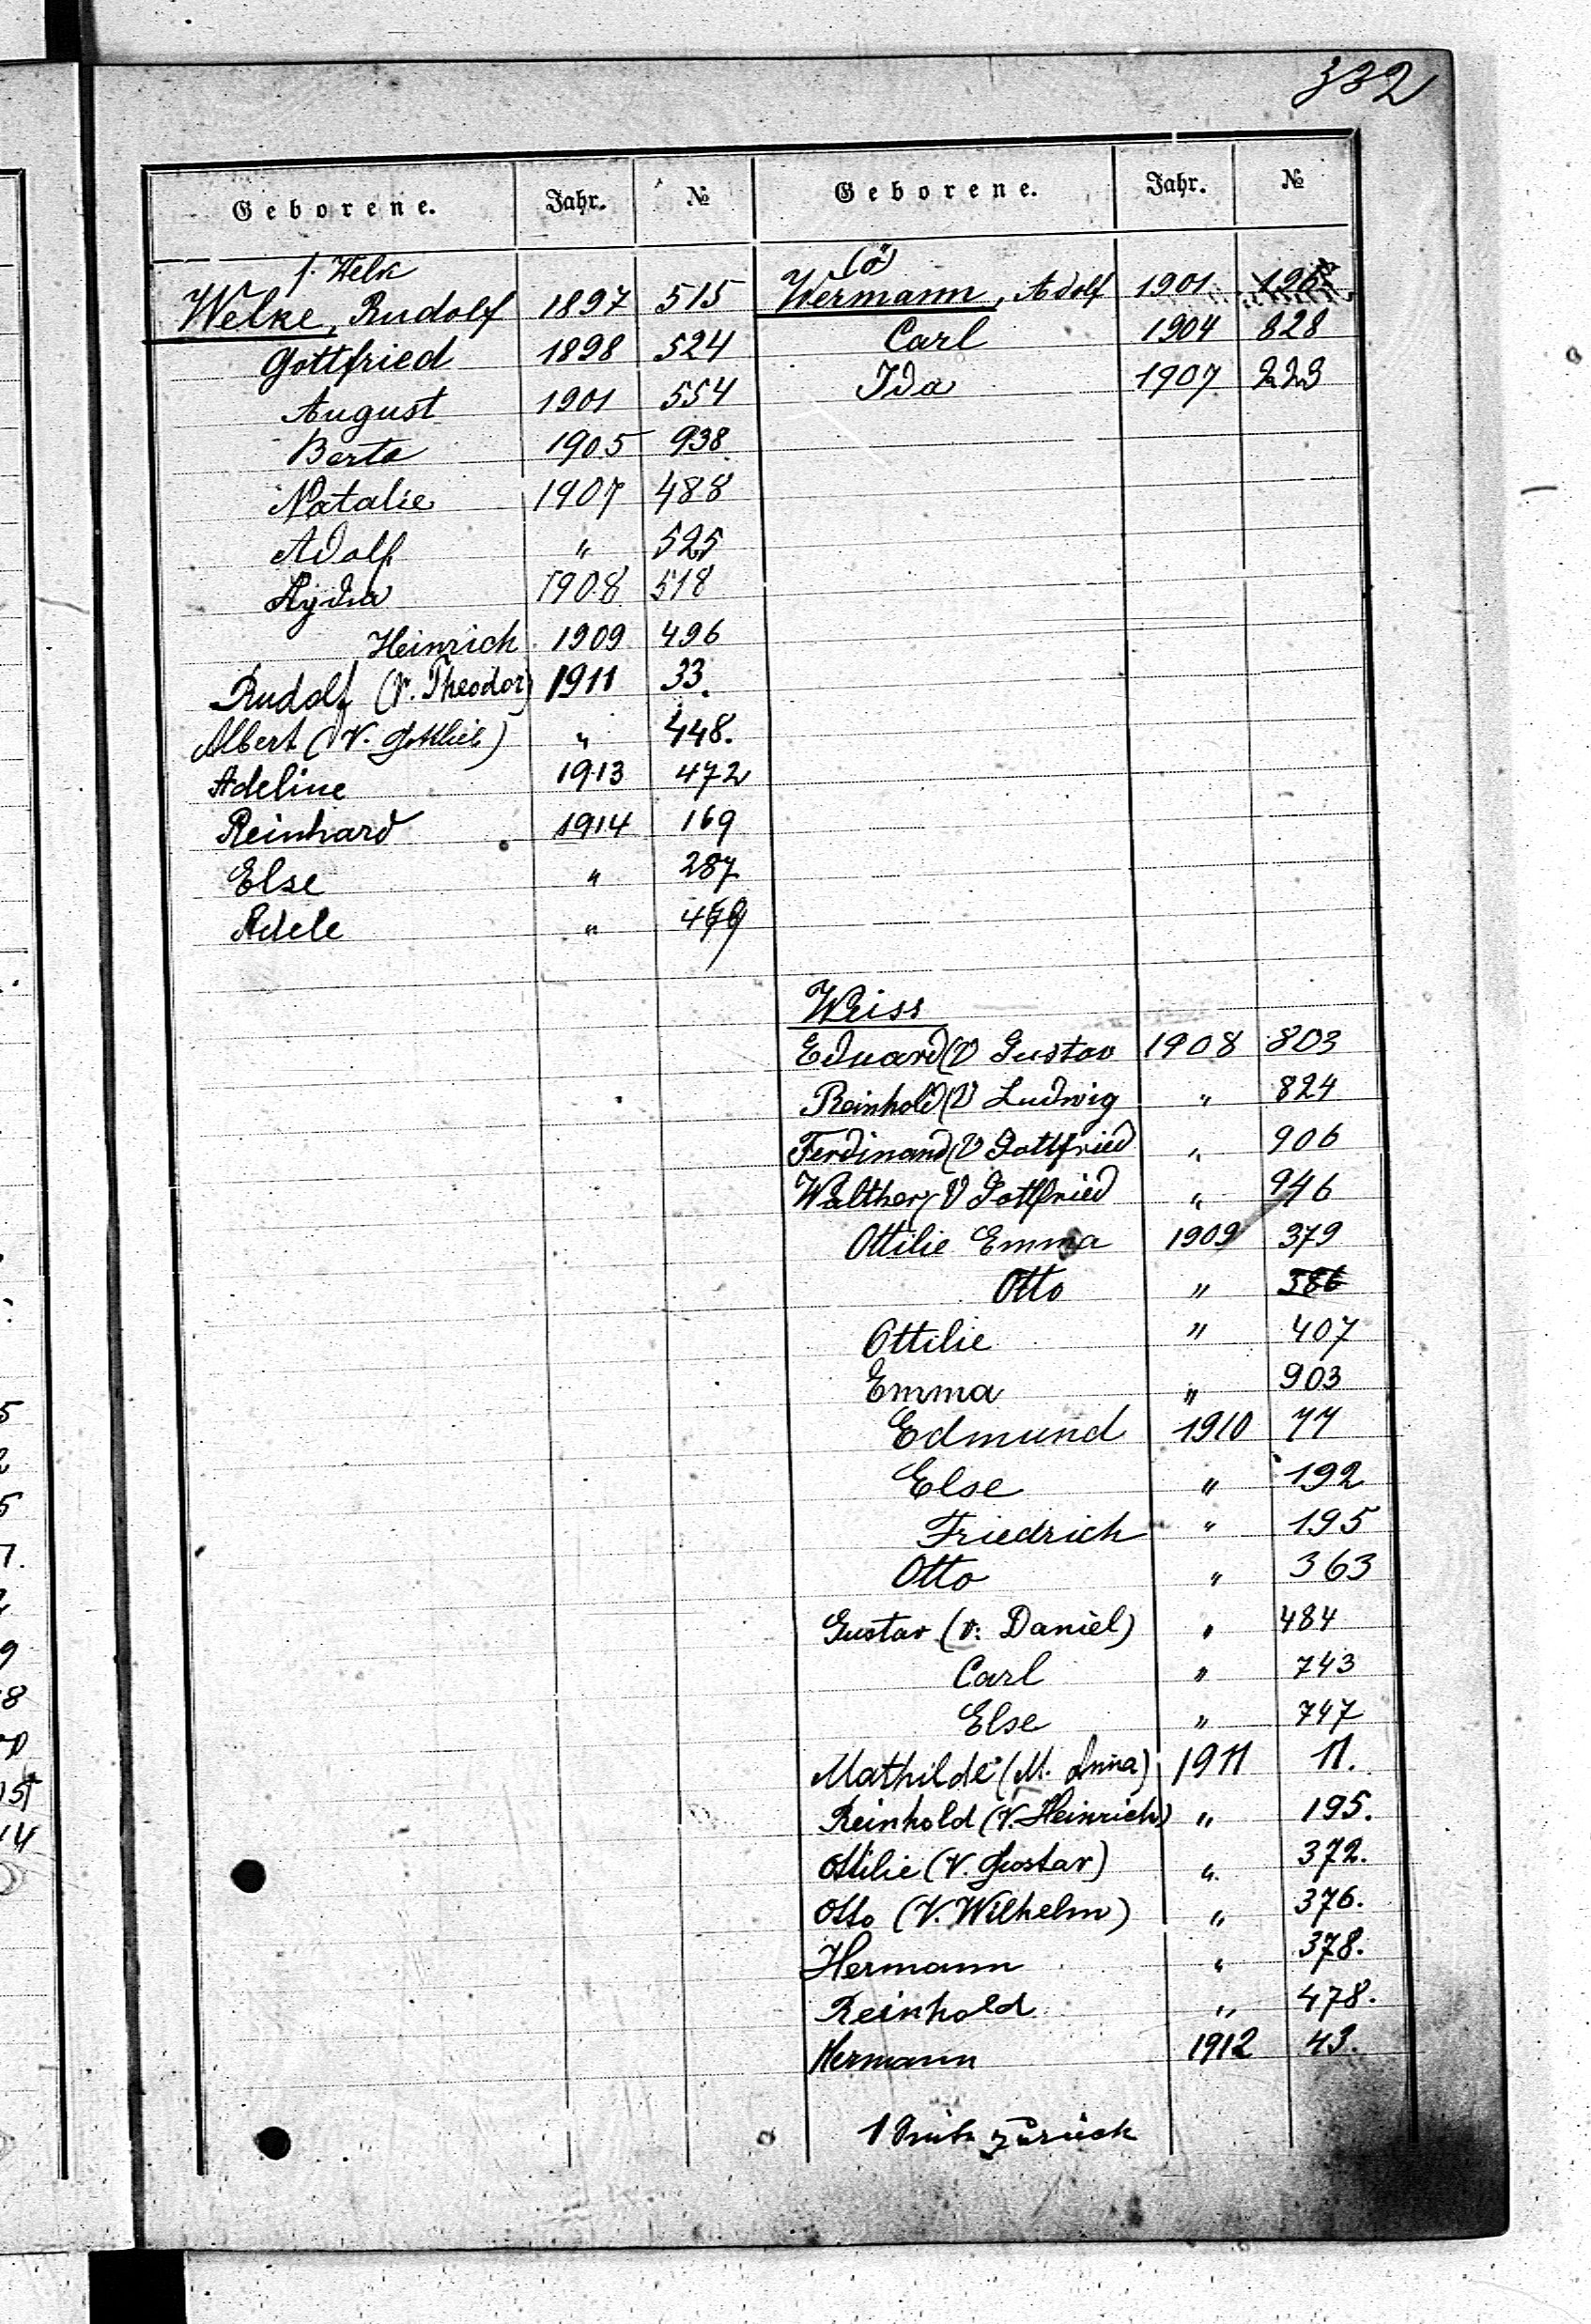 332
Geborene. Jahr. №
f. Welk
Welke, Rudolf 1897 515
Gottfried 1898 524
August 1901 554
Berta 1905 938
Natalie 1907 488
Adolf " 525
Lydia 1908 518
Heinrich 1909 496
Rudolf (V. Theodor) 1911 33.
Albert (V. Gottlieb) " 448.
Adeline 1913 472
Reinhard 1914 169
Else " 287
Adele "
Geborene. Jahr. №
(ö)
Wermann, Adolf 1901
Carl 1904 828
Ida 1907 223
Weiss
Eduard (V Gustav 1908 803
Reinhold (V Ludwig " 824
Ferdinand (V Gottfried " 906
Walther (V Gottfried " 946
Ottilie Emma 1909 379
Otto " 386
Ottilie " 407
Emma " 903
Edmund 1910 77
Else " 192
Friedrich " 195
Otto " 363
Gustav (v. Daniel) " 484
Carl " 743
Else " 747
Mathilde (M. Anna) 1911 11.
Reinhold (V. Heinrich) " 195.
Ottilie (V. Gustav) " 372.
Otto (V. Wilhelm) " 376.
Hermann " 378.
Reinhold " 478.
Hermann 1912 43.
1 zurück